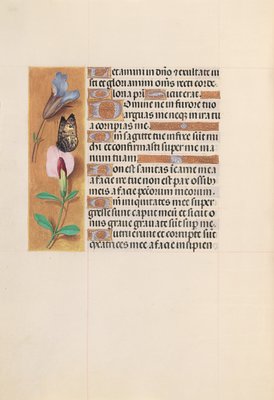 Letamini in dno et exultate iu
sti et gloriamini oms recti corde
Gloria pri sicut erat
Domine ne in furore tuo
arguas me neqz in ira tu
a corripias me
Qm sagitte tue infixe sunt mi
chi et confirmasti super me ma
num tuam
Non est sanitas i carne mea
a facie ire tue non est pax ossibz
meis a facie peccatorum meorum
Qm iniquitates mee super
gresse sunt caput meum et sicut o
nus graue grauate sunt sup me
Putruerunt et corrupte sut
cicatrices mee a facie insipien